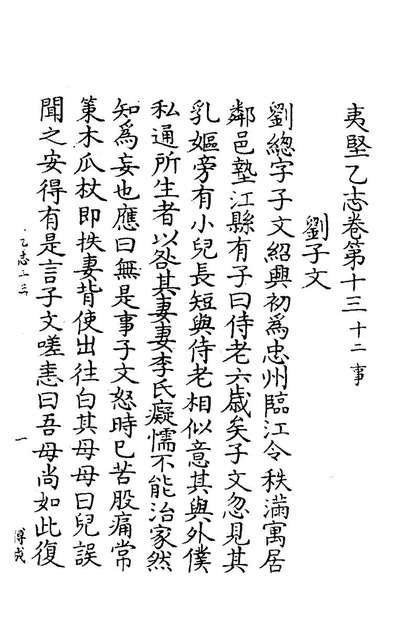 夷堅乙志卷第十三 十二事
劉子文
劉總字子文紹興初爲忠州臨江令秩滿寓居
鄰邑墊江縣有子曰侍老六歲矣子文忽見其
乳嫗旁有小兒長短與侍老相似意其與外僕
私通所生者以咎其妻妻李氏癡懦不能治家然
知爲妄也應曰無是事子文怒時巳苦股痛常
策木瓜杖即抶妻背使出往白其母母曰兒誤
聞之安得有是言子文嗟恚曰吾母尚如此復
乙志十三
一